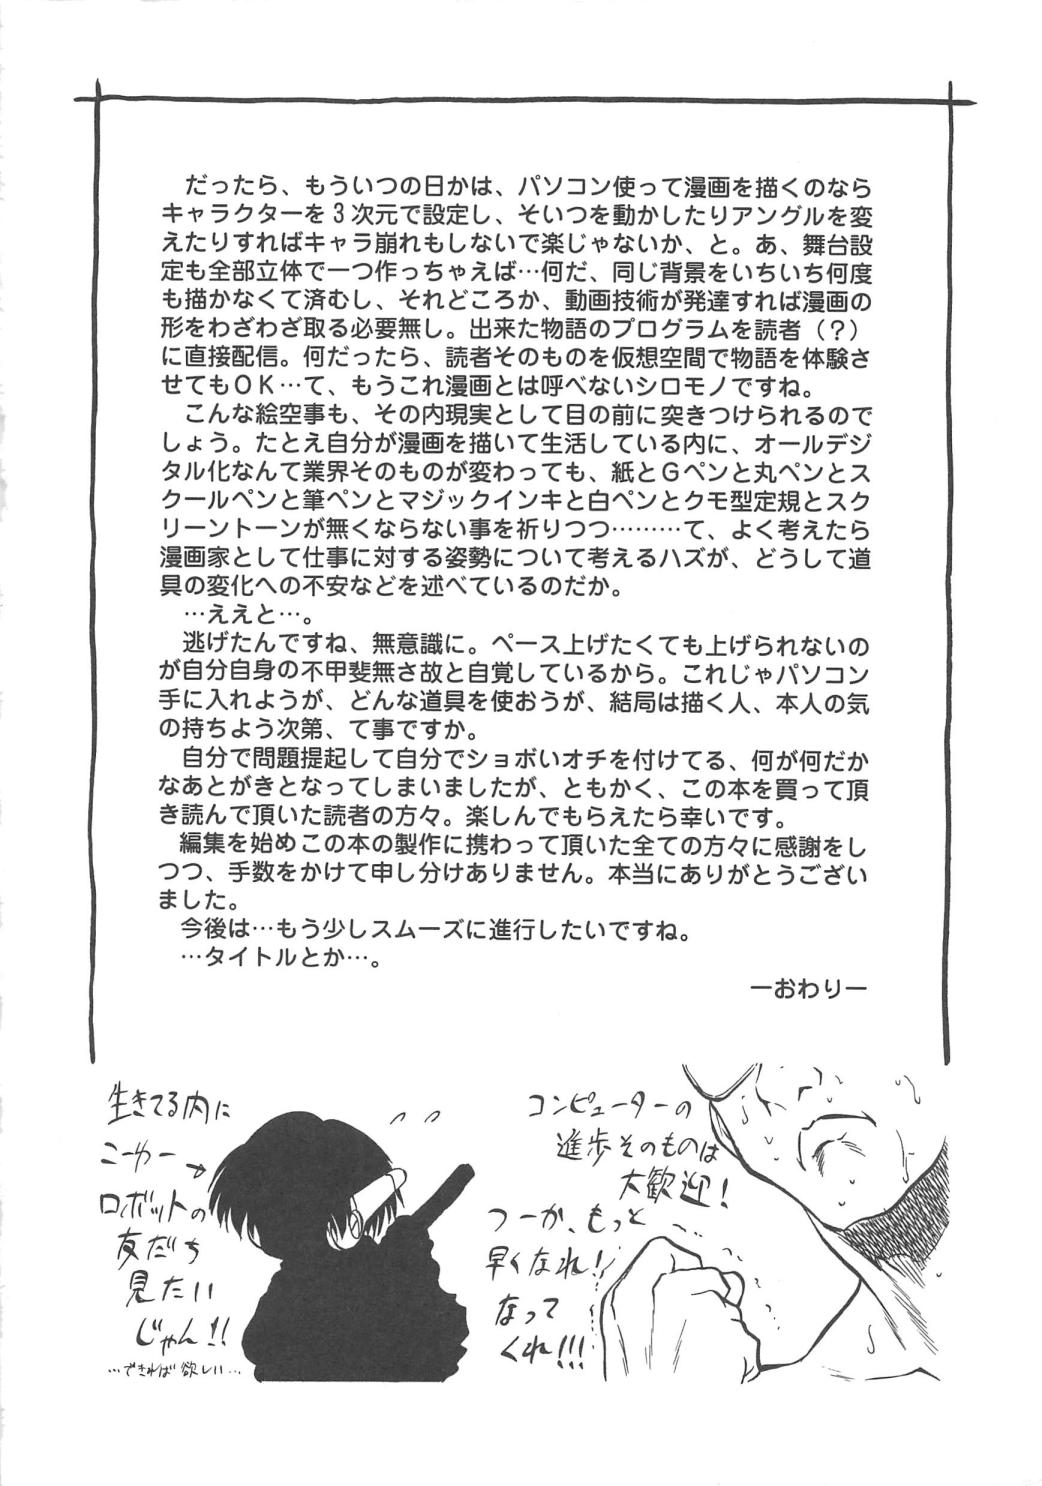 だったら、もういつの日かは、パソコン使って漫画を描くのなら
キャラクターを3次元で設定し、そいつを動かしたりアングルを変
えたりすればキャラ崩れもしないで楽じゃないか、と。あ、舞台設
定も全部立体で一つ作っちゃえば…何だ、同じ背景をいちいち何度
も描かなくて済むし、それどころか、動画技術が発達すれば漫画の
形をわざわざ取る必要無し。出来た物語のプログラムを読者（？）
に直接配信。何だったら、読者そのものを仮想空間で物語を体験さ
せてもOK…て、もうこれ漫画とは呼べないシロモノですね。
こんな絵空事も、その内現実として目の前に突きつけられるので
しょう。たとえ自分が漫画を描いて生活している内に、オールデジ
タル化なんて業界そのものが変わっても、紙とGペンと丸ペンとス
クールペンと筆ペンとマジックインキと白ペンとクモ型定規とスク
リーントーンが無くならない事を祈りつつ………て、よく考えたら
漫画家として仕事に対する姿勢について考えるハズが、どうして道
具の変化への不安などを述べているのだか。
…ええと…。
逃げたんですね、無意識に。ペース上げたくても上げられないの
が自分自身の不甲斐無さ故と自覚しているから。これじゃパソコン
手に入れようが、どんな道具を使おうが、結局は描く人、本人の気
の持ちよう次第、て事ですか。
自分で問題提起して自分でショボいオチを付けてる、何が何だか
なあとがきとなってしまいましたが、ともかく、この本を買って頂
き読んで頂いた読者の方々。楽しんでもらえたら幸いです。
編集を始めこの本の製作に携わって頂いた全ての方々に感謝をし
つつ、手数をかけて申し分けありません。本当にありがとうござい
ました。
今後は…もう少しスムーズに進行したいですね。
…タイトルとか…。
ーおわりー
コンピューターの
進歩そのものは
大歓迎！
つーか、もっと
早くなれ！
なって
くれ!!!
生きてる内に
こーゆー
ロボットの
友だち
見たい
じゃん!!
…できれば欲しい…